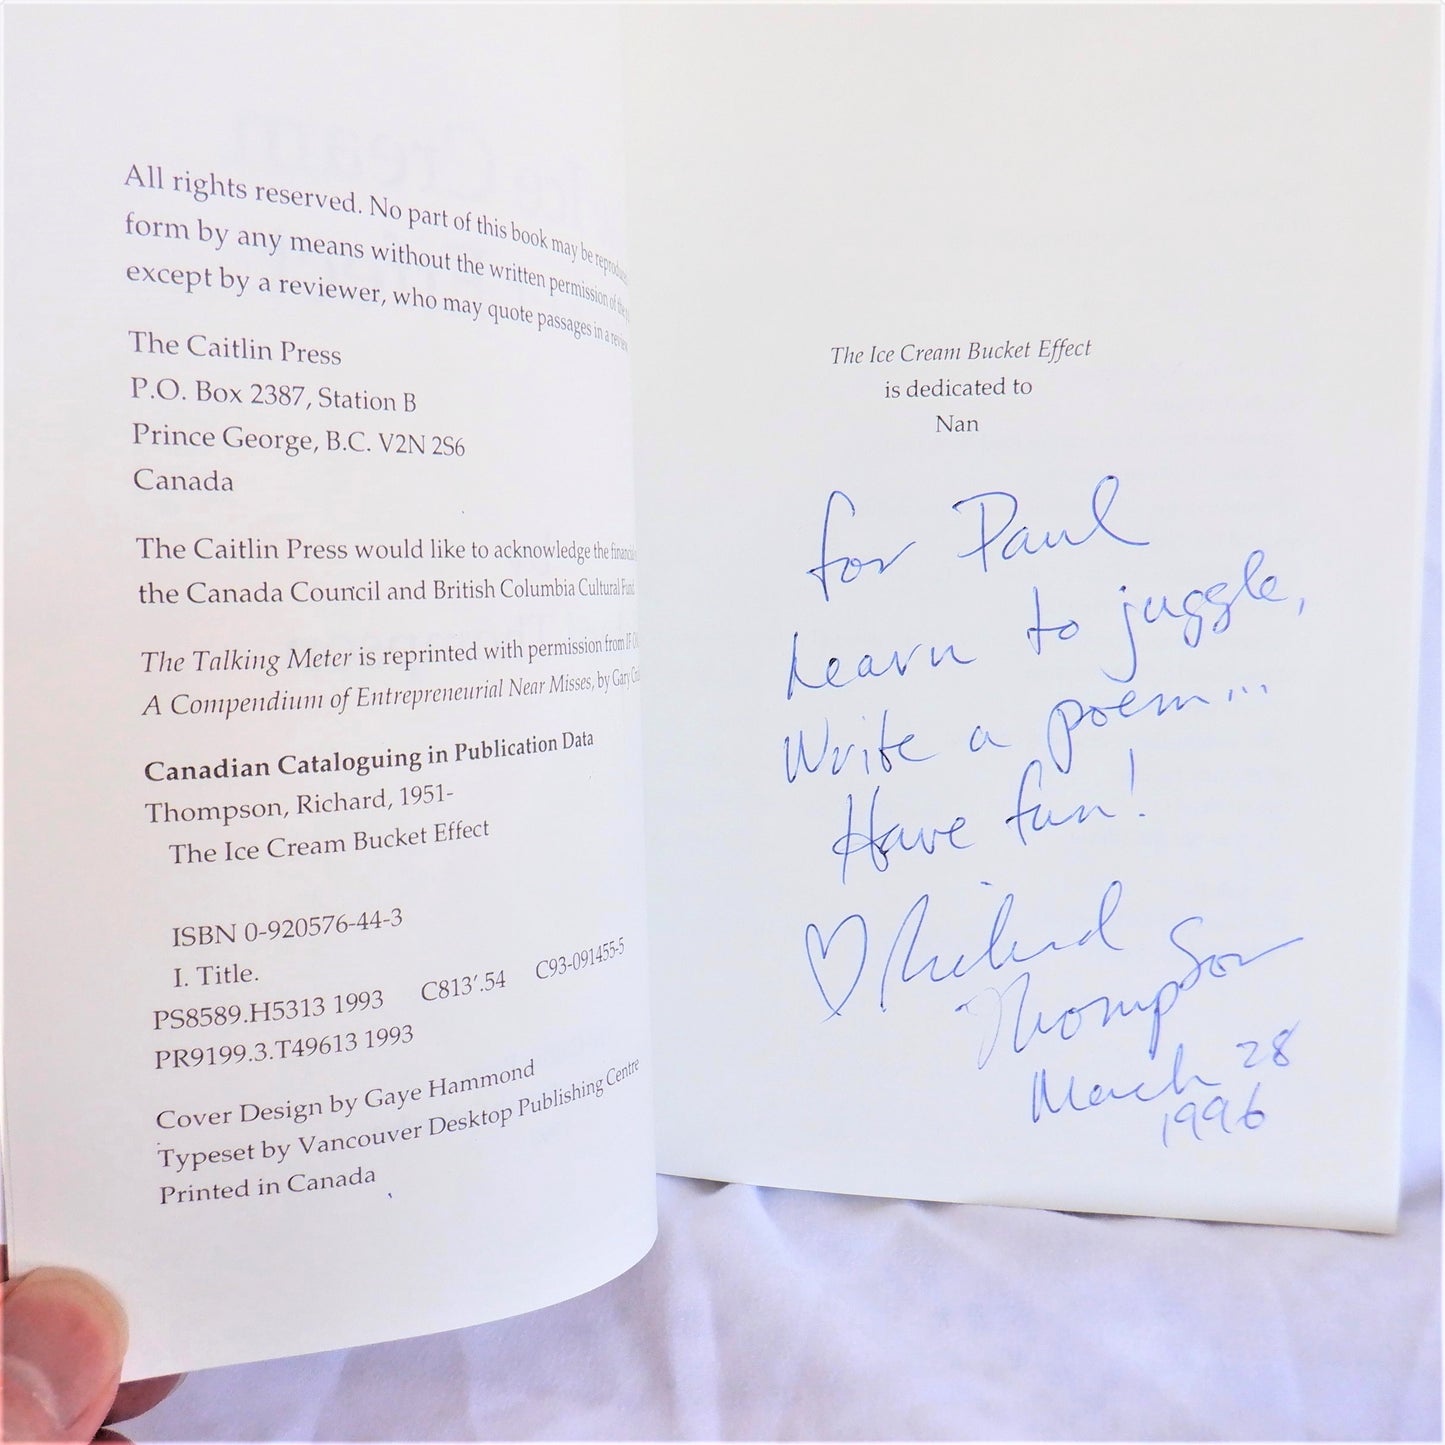 All rights reserved. No part of this book may be reproduced
form by any means without the written permission of the
except by a reviewer, who may quote passages in a review
The Caitlin Press
P.O. Box 2387, Station B
Prince George, B.C. V2N 2S6
Canada
The Caitlin Press would like to acknowledge the financial
the Canada Council and British Columbia Cultural Fund
The Talking Meter is reprinted with permission from
A Compendium of Entrepreneurial Near Misses, by Gary
Canadian Cataloguing in Publication Data
Thompson, Richard, 1951-
The Ice Cream Bucket Effect
ISBN 0-920576-44-3
I. Title.
PS8589.H5313 1993 C813'.54 C93-091455-5
PR9199.3.T49613 1993
Cover Design by Gaye Hammond
Typeset by Vancouver Desktop Publishing Centre
Printed in Canada
The Ice Cream Bucket Effect
is dedicated to
Nan
for Paul
Learn to juggle,
Write a poem...
Have fun!
♡ Richard
Thompson
March 28
1996